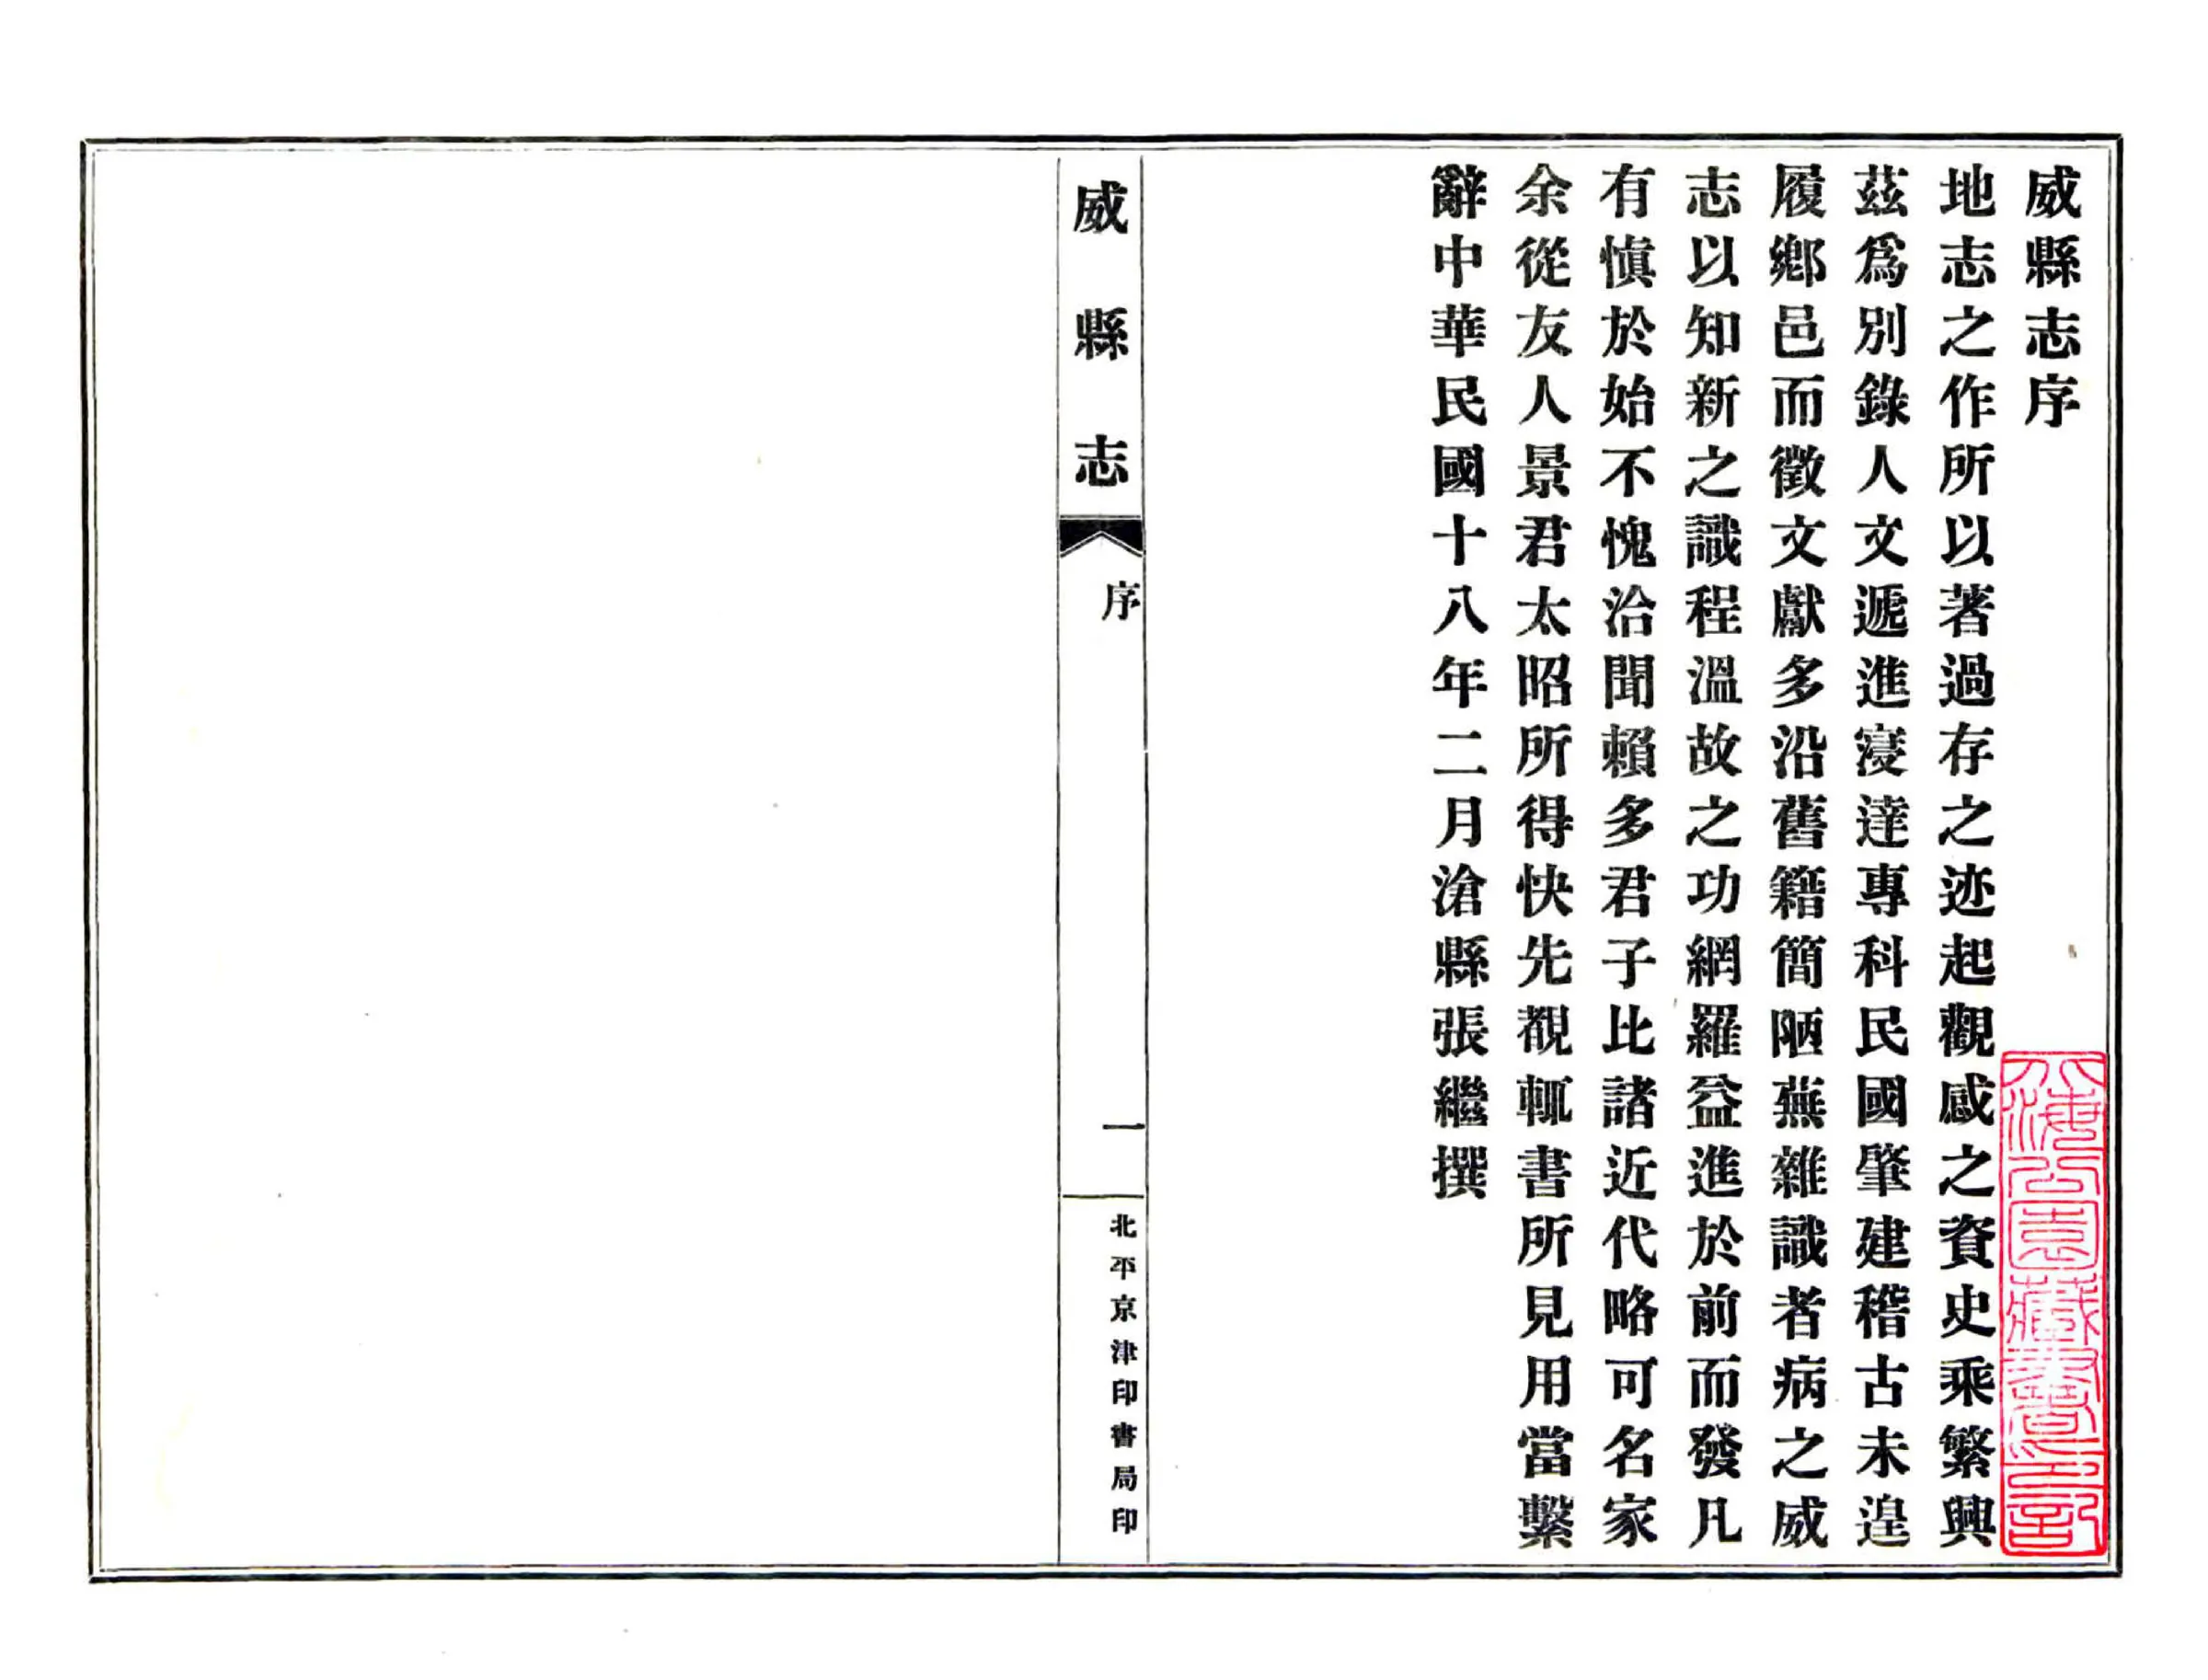 威縣志序
地志之作所以著過存之迹起觀感之資史乘繁興
茲爲別錄人文遞進寖達專科民國肇建稽古未遑
履鄉邑而徵文獻多沿舊籍簡陋蕪雜識者病之威
志以知新之識程溫故之功網羅益進於前而發凡
有慎於始不愧洽聞賴多君子比諸近代略可名家
余從友人景君太昭所得快先覩輒書所見用當繫
辭中華民國十八年二月滄縣張繼撰
威縣志
序
一
北平京津印書局印